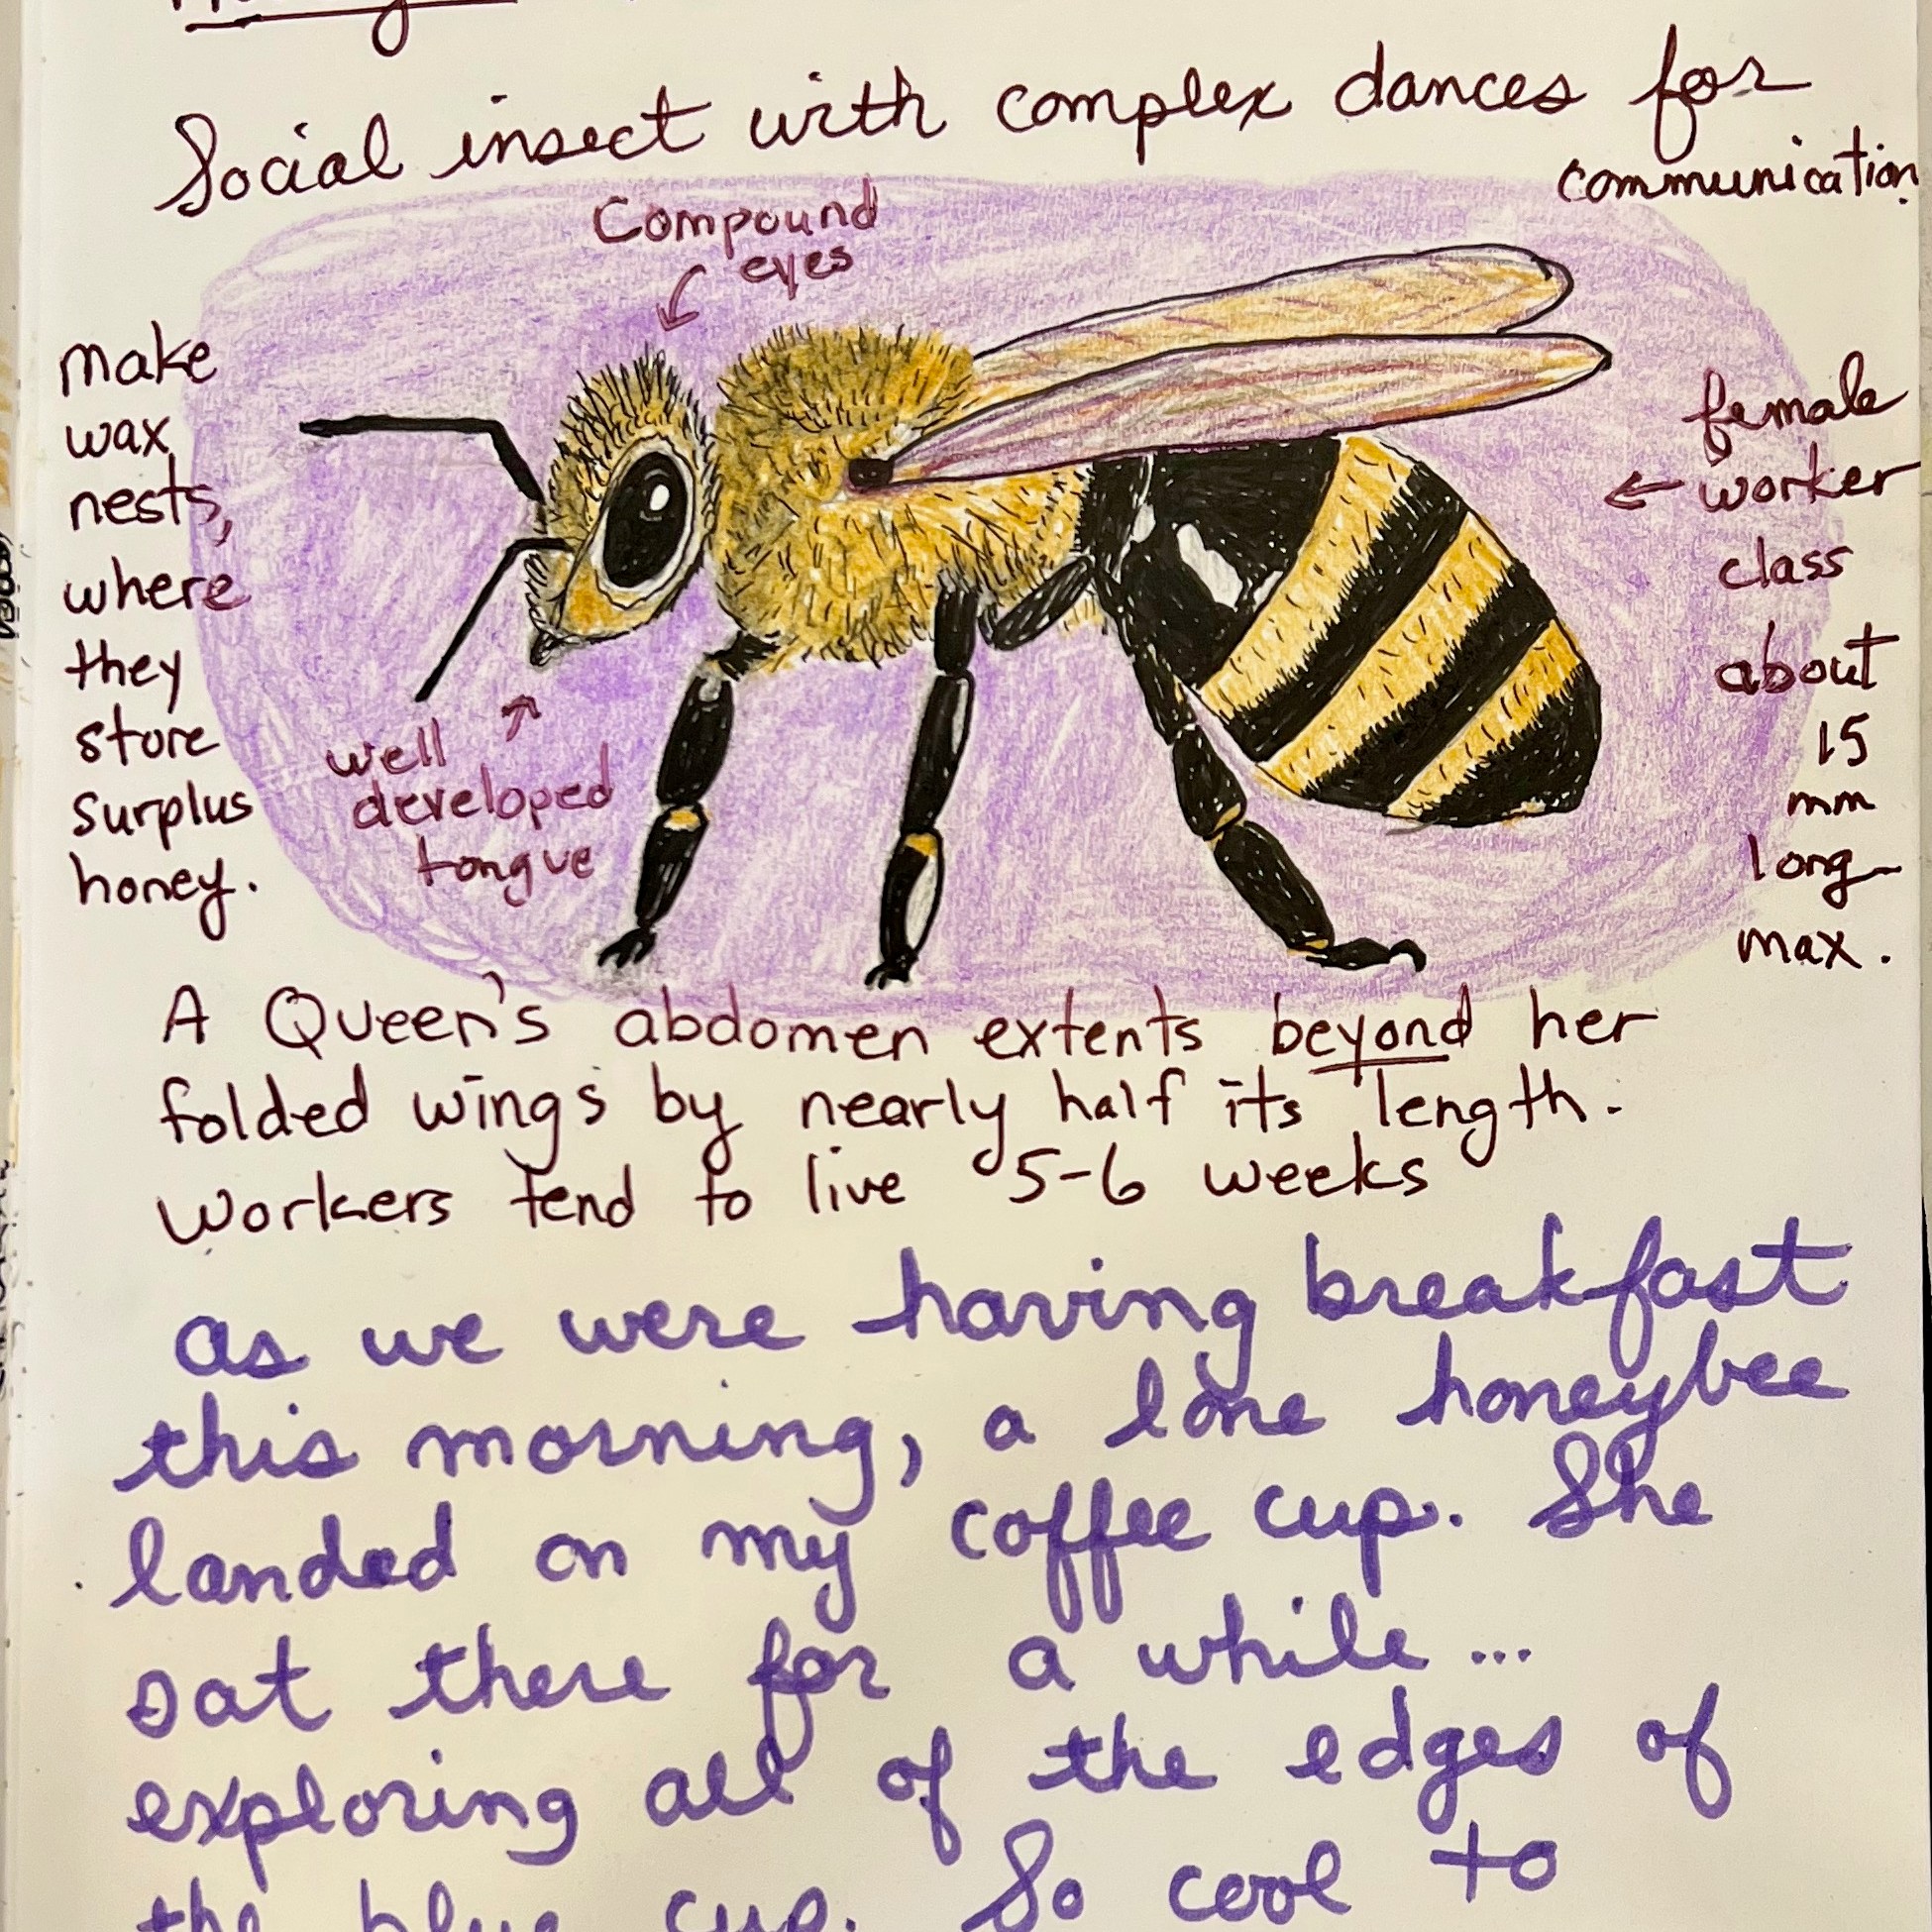 Social insect with complex dances for
communication.
Compound
eyes
make
wax
nests,
where
they
store
surplus
honey.
well
developed
tongue
female
worker
class
about
15
mm
long
max.
A Queen's abdomen extents beyond her
folded wings by nearly half its length.
Workers tend to live 5-6 weeks
as we were having breakfast
this morning, a lone honeybee
landed on my coffee cup. She
sat there for a while...
exploring all of the edges of
the blue cup. So cool to